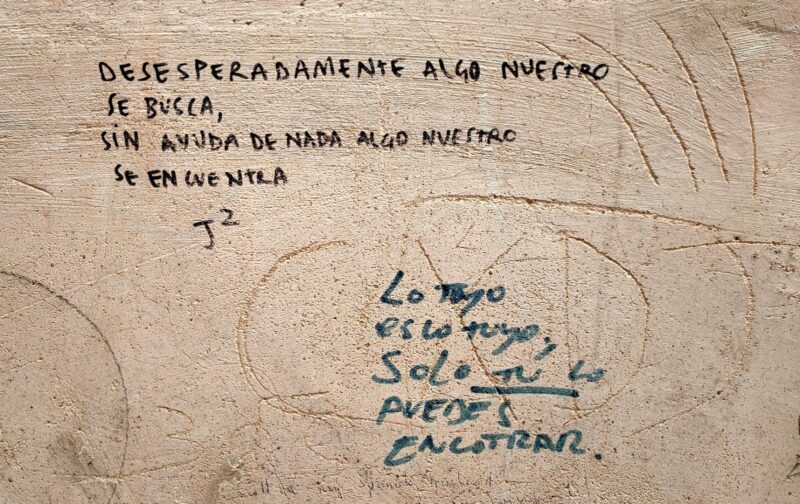 DESESPERADAMENTE ALGO NUESTRO
SE BUSCA,
SIN AYUDA DE NADA ALGO NUESTRO
SE ENCUENTRA
J²
LO TUYO
ES LO TUYO,
SOLO TU LO
PUEDES
ENCOTRAR.